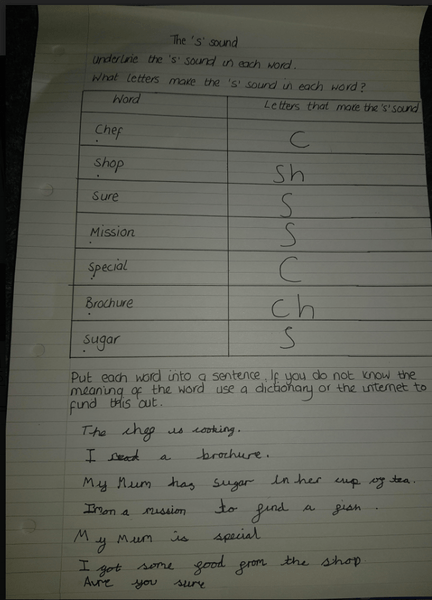 The 's' sound
underline the 's' sound in each word.
What letters make the 's' sound in each word?
Word Letters that make the 's' sound
Chef C
Shop Sh
Sure S
Mission S
Special C
Brochure Ch
Sugar S
Put each word into a sentence, If you do not know the
meaning of the word use a dictionary or the internet to
find this out.
The chef is cooking.
I read a brochure.
My Mum has sugar in her cup of tea.
Im on a mission to find a fish.
My Mum is special
I got some food from the shop
Are you sure